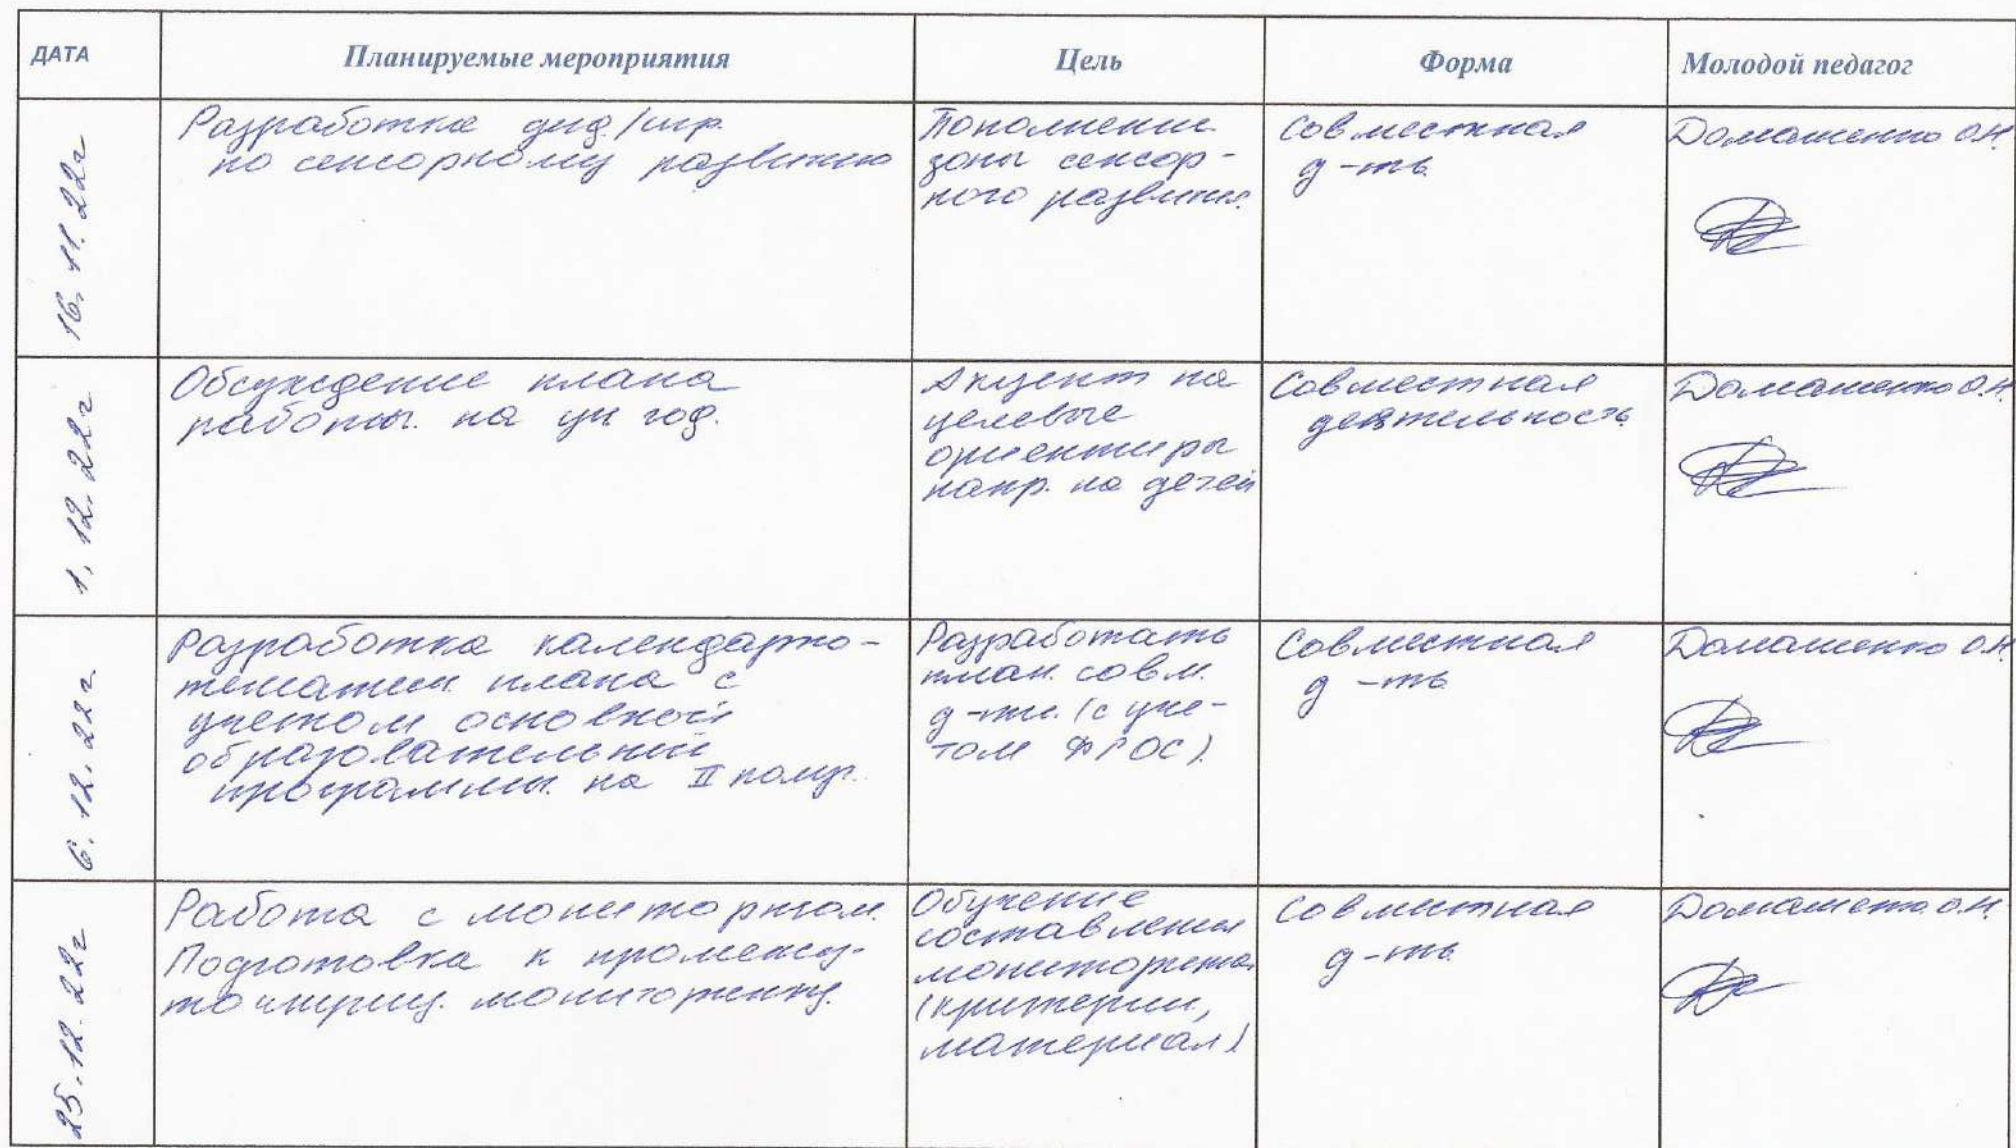 ДАТА Планируемые мероприятия Цель Форма Молодой педагог
16.11.22г
Разработка дид/игр.
по сенсорному развитию
Пополнение
зоны сенсор-
ного развития.
Совместная
д-ть
Домашенко О.Н.
1.12.22г
Обсуждение плана
работы. на уч год.
Акцент на
целевые
ориентиры
напр. на детей
Совместная
деятельность
Домашенко О.Н.
6.12.22г
Разработка календарно-
тематич. плана с
учетом основной
образовательной
программы. на II полуг.
Разработать
план. совм.
д-ти. (с уче-
том ФГОС).
Совместная
д-ть
Домашенко О.Н.
25.12.22г
Работа с мониторгом.
Подготовка к промежу-
мониторингу.
Обучение
составления
мониторинга
(критерии,
материал)
Совместная
д-ть
Домашенко О.Н.